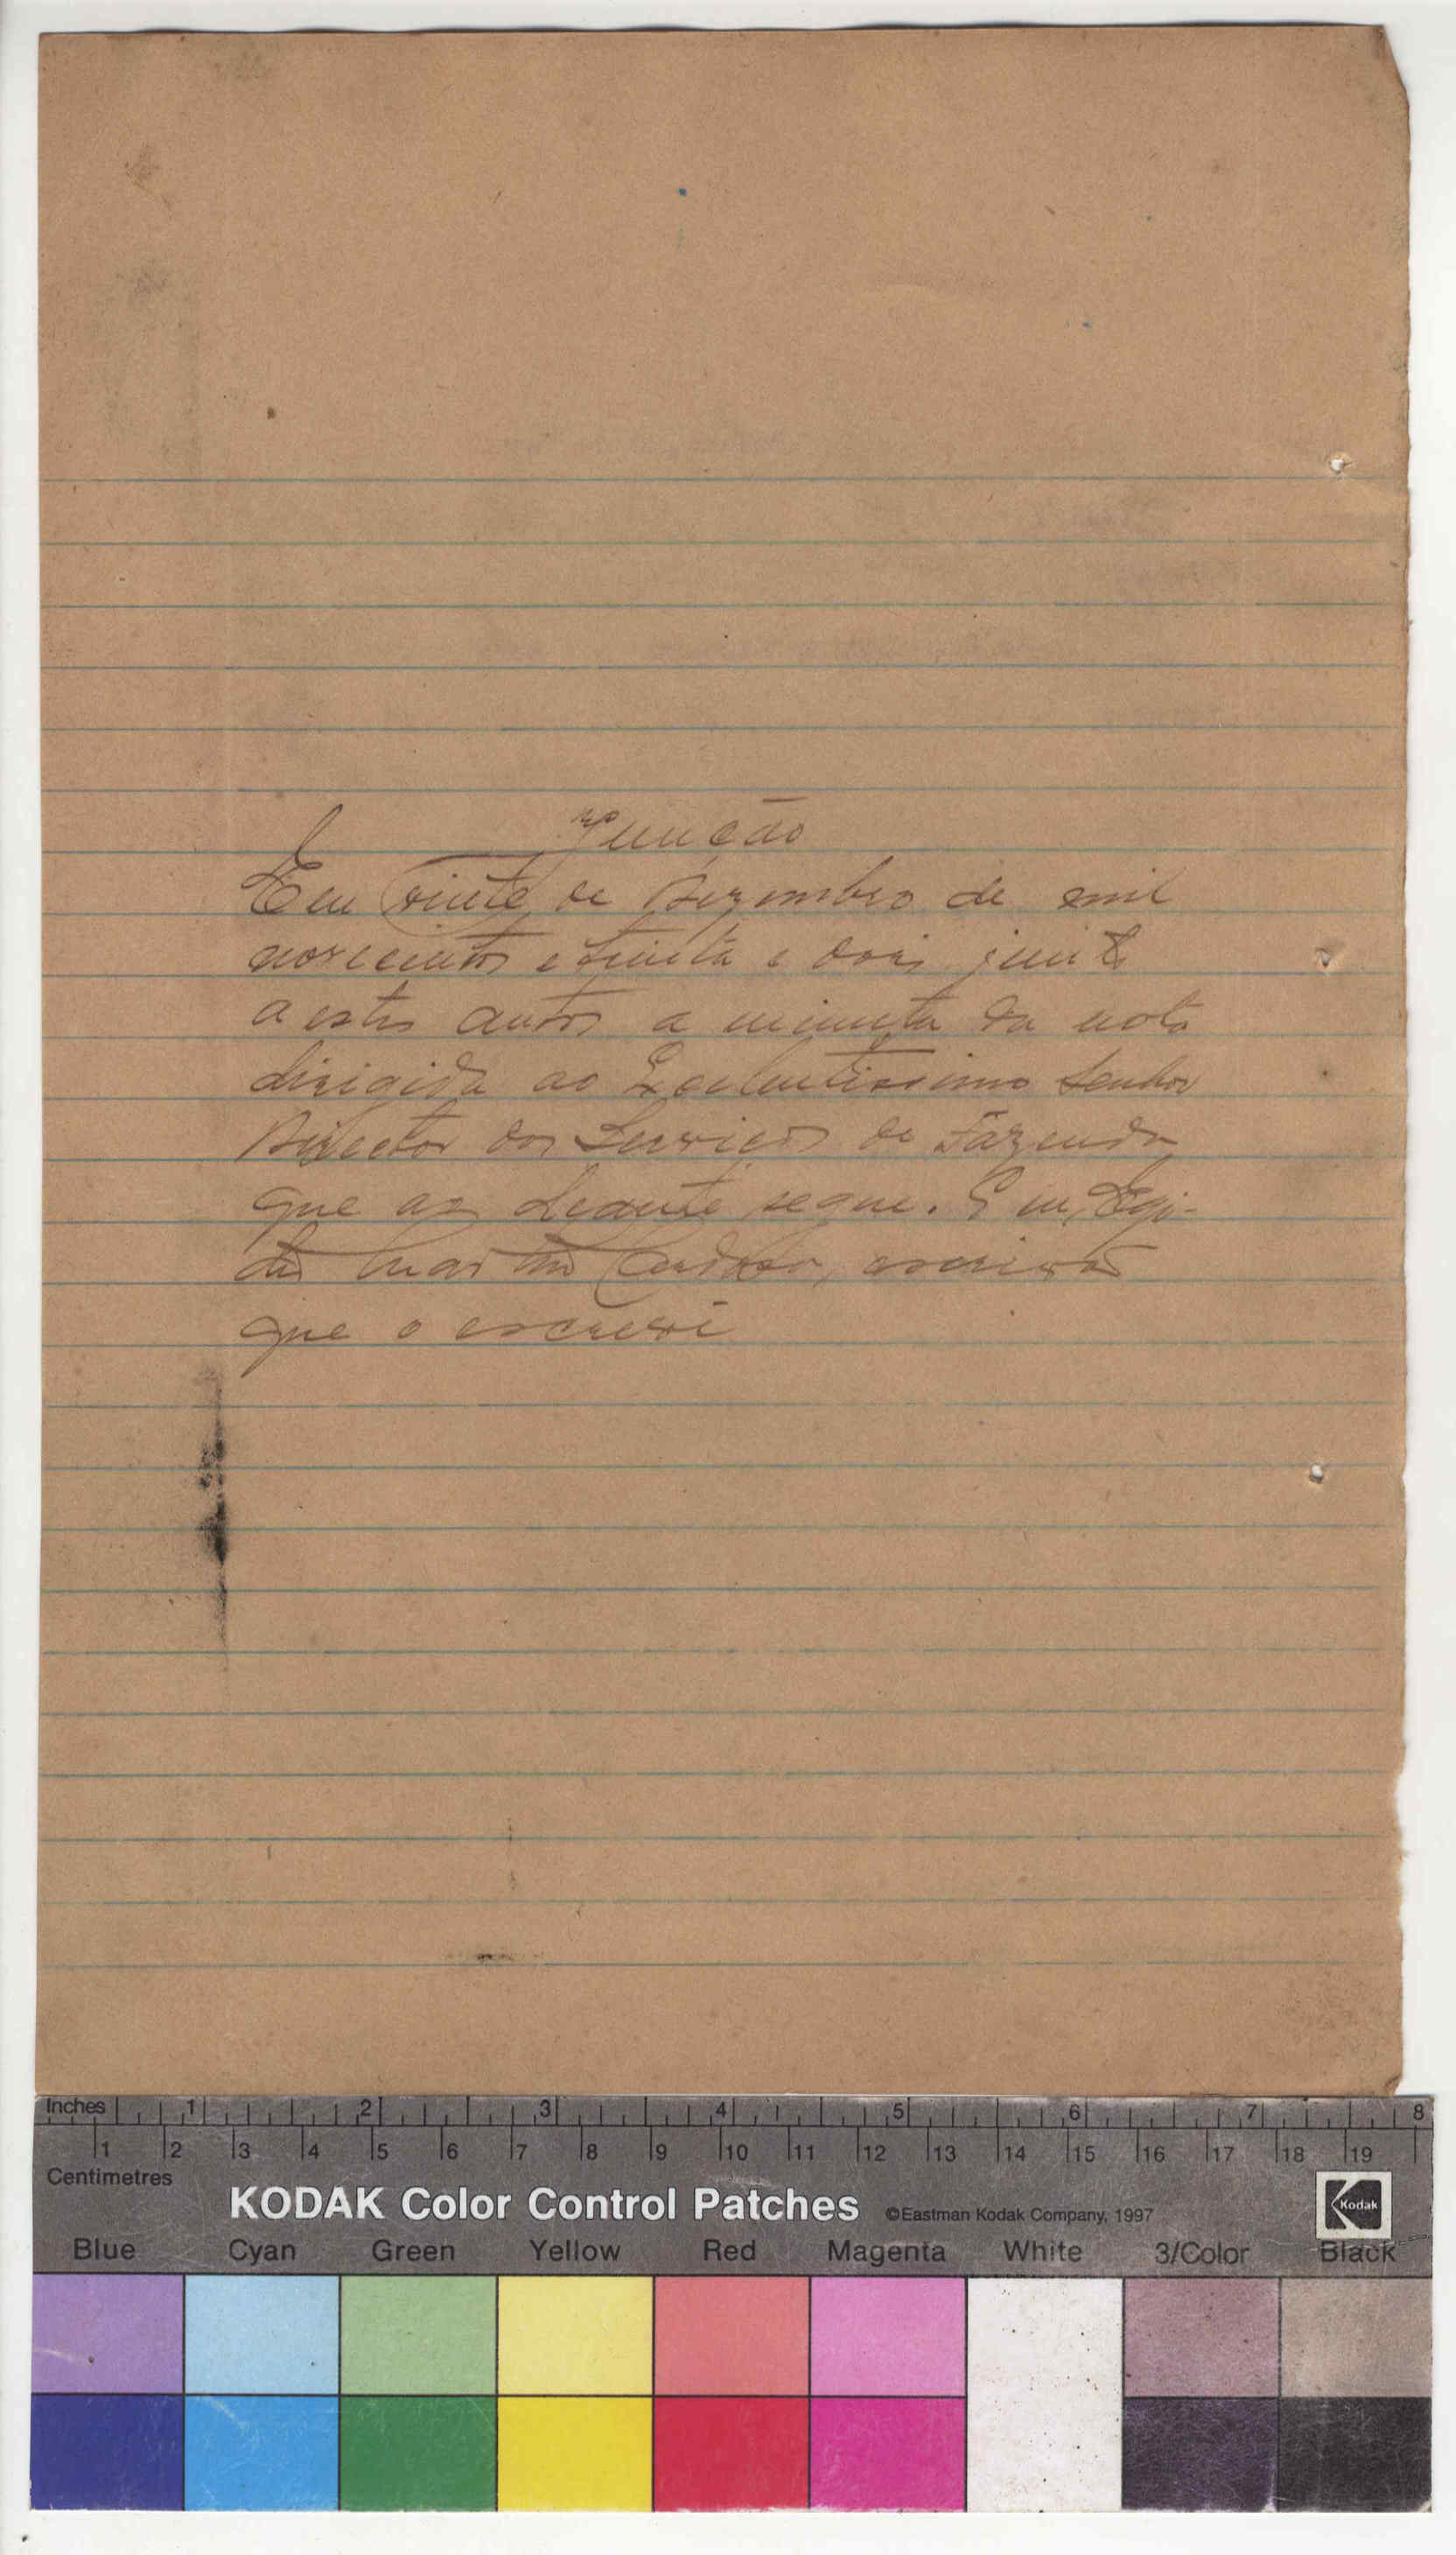 Junção
Em vinte de Dezembro de mil
novecentos e trinta e dois junto
a estes autos a minuta da nota
dirigida ao Excelentissimo Senhor
Director dos Serviços de Fazenda
que ao deante segue. E eu, Egi-
dio Cardoso, escrivão
que o escrevi
Inches 1 2 3 4 5 6 7 8
1 2 3 4 5 6 7 8 9 10 11 12 13 14 15 16 17 18 19
Centimetres
KODAK Color Control Patches ©Eastman Kodak Company, 1997 Kodak
Blue Cyan Green Yellow Red Magenta White 3/Color Black